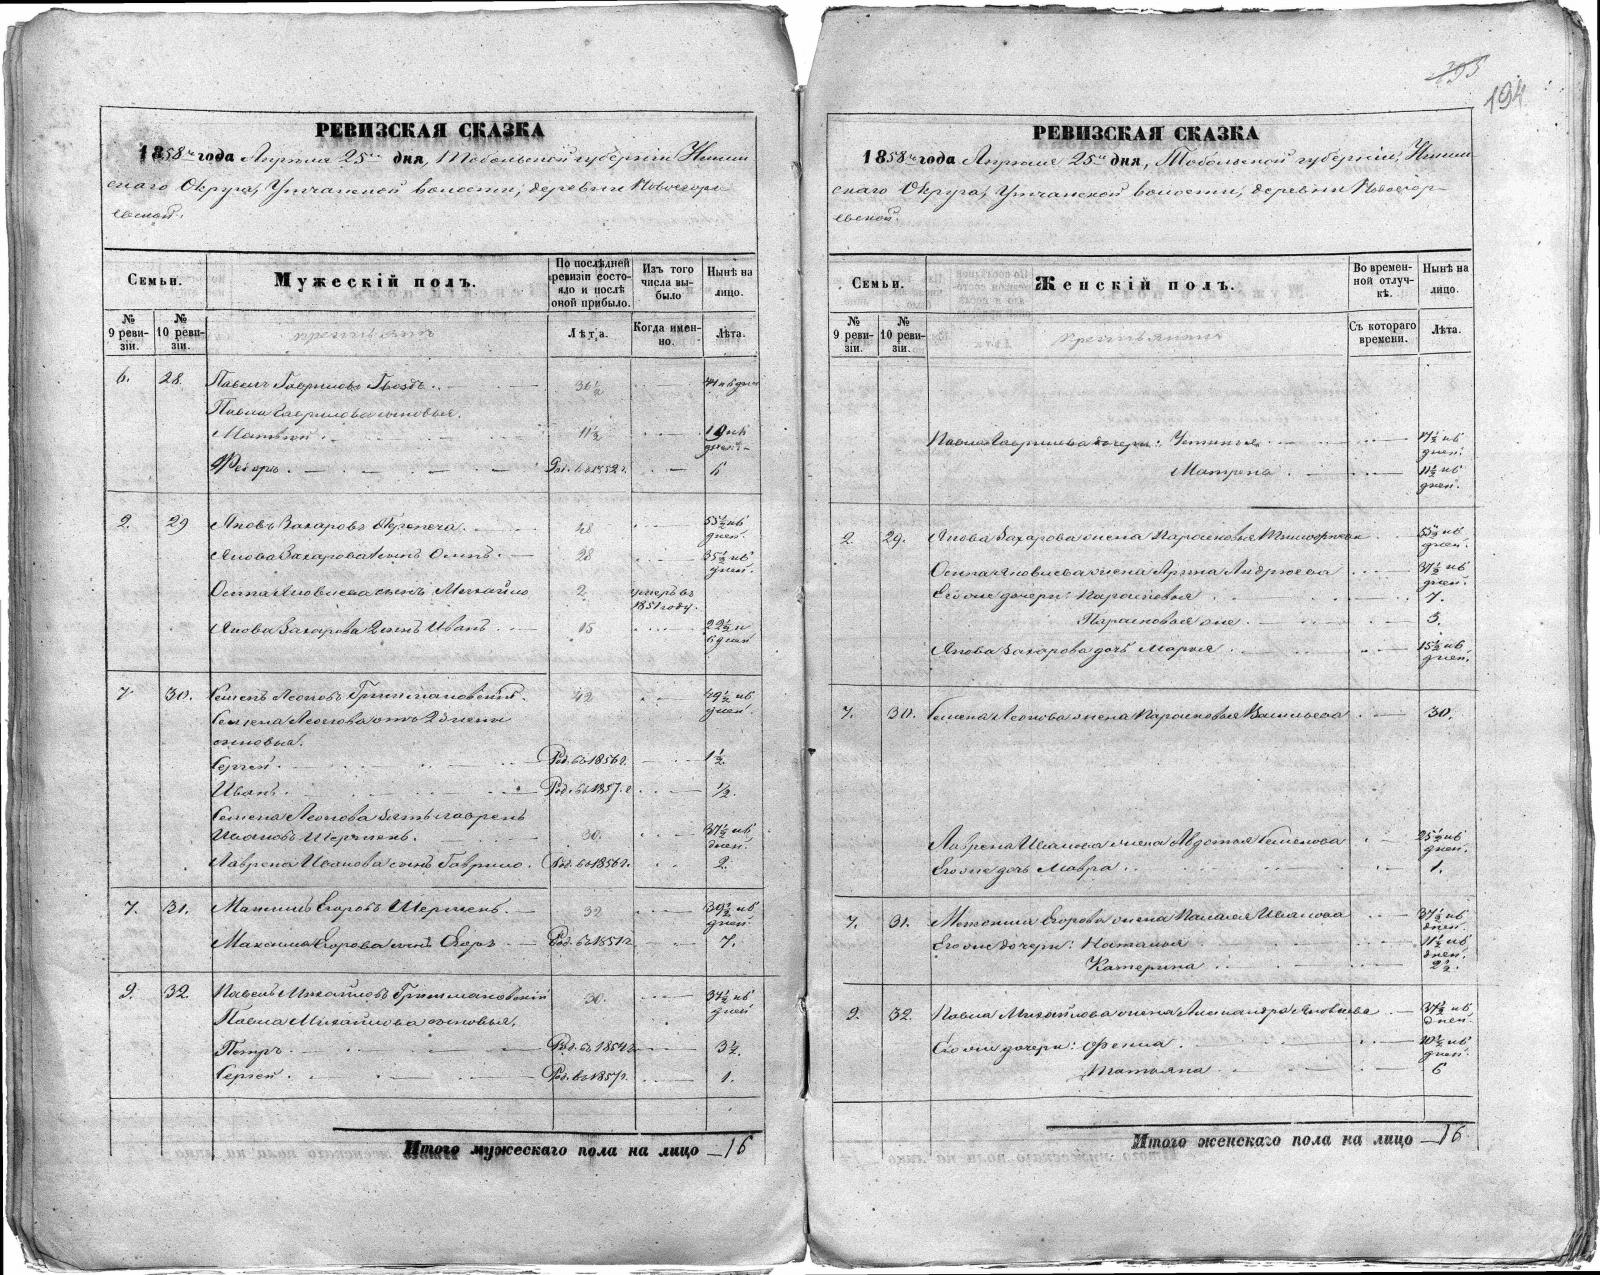 РЕВИЗСКАЯ СКАЗКА
1858 года Апреля 25 дня, Тобольской губернiи Ишим
скаго Округа, Утчанской волости, деревни Новогеор
евской.
Семьи.
Мужескiй полъ.
По послѣдней ревизiи состояло и послѣ оной прибыло.
Изъ того числа выбыло
Нынѣ на лицо.
№ 9 ревизiи.
№ 10 ревизiи.
Лѣта.
Когда именно.
Лѣта.
6. 28. Павелъ Гавриловъ 36½
Павла Гаврилова сыновья.
Матвей 11½ 19 и 6 дней
Федоръ Род. въ 1852 г. 6
2. 29 Яковъ Захаровъ 48 55½ и 6 дней.
Якова Захарова 1 сынъ Осипъ 28 35½ и 6 дней.
Осипа Яковлева сынъ Михайло 2 умеръ въ 1851 году.
Якова Захарова 2 сынъ Иванъ 15 22½ и 6 дней
7 30. Семенъ Леоновъ Гришмановскiй 42 49½ и 6 дней.
Семена Леонова отъ 2 жены
сыновья.
Сергей Род. въ 1856 г. 1½.
Иванъ Род. въ 1857. г ½.
Семена Леонова зять Лаврень
Ивановъ Шершень. 30. 37½ и 6 дней.
Лаврена Иванова сынъ Гаврило Род. въ 1856 г. 2.
7. 31. Максимъ Егоровъ Шершень. 32 39½ и 6 дней
Максима Егорова сынъ Егоръ Род. въ 1851 г. 7.
9. 32. Павелъ Михайловъ Гришмановскiй 30. 37½ и 6 дней
Павла Михайлова сыновья,
Петръ Род. въ 1854 г. 3½.
Сергей Род. въ 1857 г. 1.
Итого мужескаго пола на лицо 16
195
194
РЕВИЗСКАЯ СКАЗКА
1858 года Апреля 25 дня, Тобольской губернiи, Ишим
скаго Округа, Утчанской волости, деревни Новогеор-
евской.
Семьи.
Женскiй полъ.
Во временной отлучкѣ.
Нынѣ на лицо.
№ 9 ревизiи.
№ 10 ревизiи.
Съ котораго времени.
Лѣта.
Павла Гаврилова дочери: Устинья 17½ и 6 дней.
Матрена 11½ и 6 дней.
2 29. Якова Захарова жена Парасковья 55½ и 6 дней.
Осипа Яковлева жена Арина Андреева 37½ и 6 дней.
Его же дочери: Парасковья 7.
Парасковья же 3.
Якова Захарова дочь Марья 15½ и 6 дней.
7. 30. Семена Леонова жена Парасковья Васильева 30.
Лаврена Иванова жена Авдотья Семенова 25½ и 6 дней.
Его же дочь Мавра 1.
7. 31. Максима Егорова жена Палагея Иванова 37½ и 6 дней.
Его же дочери: Наталья 11½ и 6 дней.
Катерина 2½.
9. 32. Павла Михайлова жена Александра Яковлева 37½ и 6 дней.
Его же дочери: Фекла 10½ и 6 дней.
Татьяна 6
Итого женскаго пола на лицо 16.